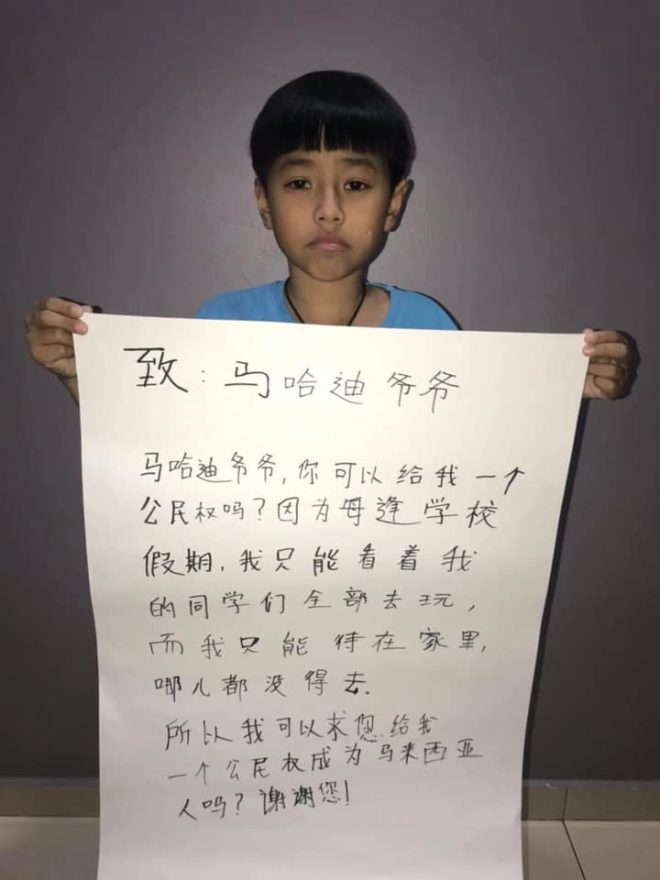 致：马哈迪爷爷
马哈迪爷爷，你可以给我一个
公民权吗？因为每逢学校
假期，我只能看着我
的同学们全部去玩，
而我只能待在家里，
哪儿都没得去.
所以我可以求您给我
一个公民权成为马来西亚
人吗？谢谢您！